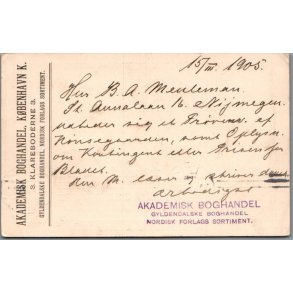 AKADEMISK BOGHANDEL, KØBENHAVN K.
3. KLAREBODERNE 3.
GYLDENDALSKE BOGHANDEL, NORDISK FORLAGS SORTIMENT.
15/III 1905.
Herr B. A. Meuleman.
St. Annalaan 16. Nijmegen
udbeder sig et Prøvenr. af
samt Oplysn.
om Kontingent eller Prisen for
Bladet.
Herr M. læser og skriver dansk
Ærbødigst
AKADEMISK BOGHANDEL
GYLDENDALSKE BOGHANDEL
NORDISK FORLAGS SORTIMENT.